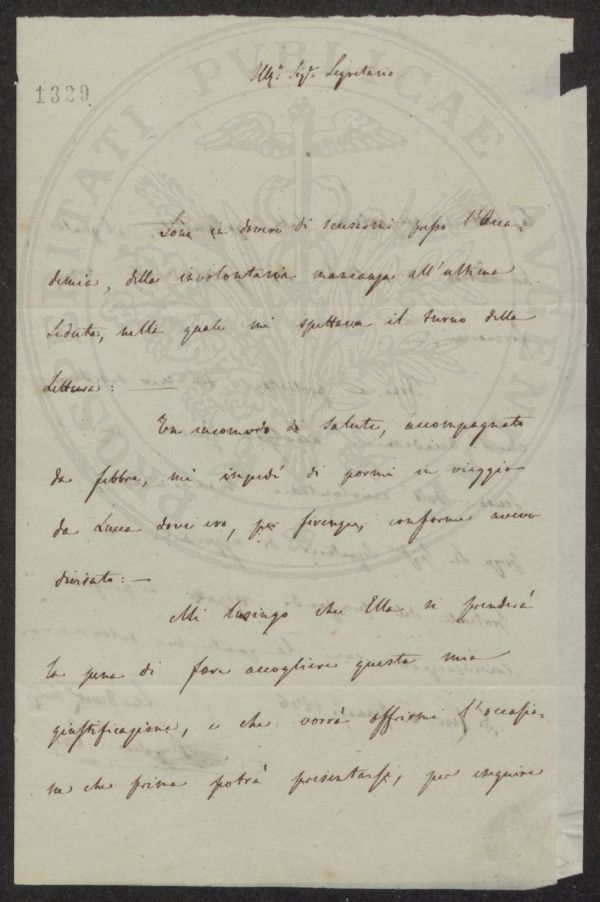 1329
Ill.mo Sig.r Segretario.
Sono in dovere di scusarmi presso l'Acca-
demia, della involontaria mancanza all'ultima
Seduta, nella quale mi spettava il turno della
Lettura: —
Un incomodo di salute, accompagnato
da febbre, mi impedì di pormi in viaggio
da Lucca dove ero, per Firenze, conforme avevo
divisato: —
Mi lusingo che Ella si prenderà
la pena di fare accogliere questa mia
giustificazione, e che vorrà offrirmi l'occasio-
ne che prima potrà presentarsi, per eseguire
PROSPERITATI PUBLICAE AUGENDAE